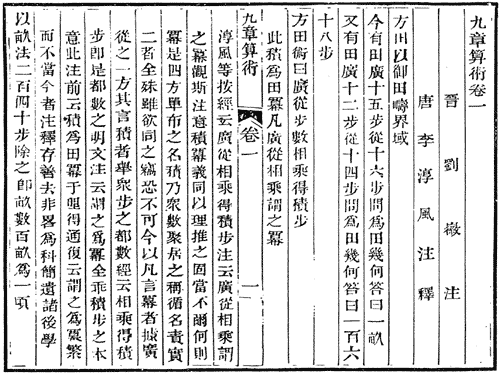 九章算術卷一
晉劉徽注
唐李淳風注釋
方田以御田疇界域
今有田廣十五步從十六步問爲田幾何答曰一畝
又有田廣十二步從十四步問爲田幾何答曰一百六
十八步
方田術曰廣從步數相乘得積步
此積爲田冪凡廣從相乘謂之冪
九章算術 卷一 一
淳風等按經云廣從相乘得積步注云廣從相乘謂
之冪觀斯注意積冪義同以理推之固當不爾何則
冪是四方單布之名積乃眾數聚居之稱循名責實
二者全殊雖欲同之竊恐不可今以凡言冪者據廣
從之一方其言積者舉眾步之都數經云相乘得積
步即是都數之明文注云謂之爲冪全乖積步之本
意此注前云積爲田冪于理得通復云謂之爲冪繁
而不當今者注釋存善去非畧爲科簡遺諸後學
以畝法二百四十步除之即畝數百畝爲一頃